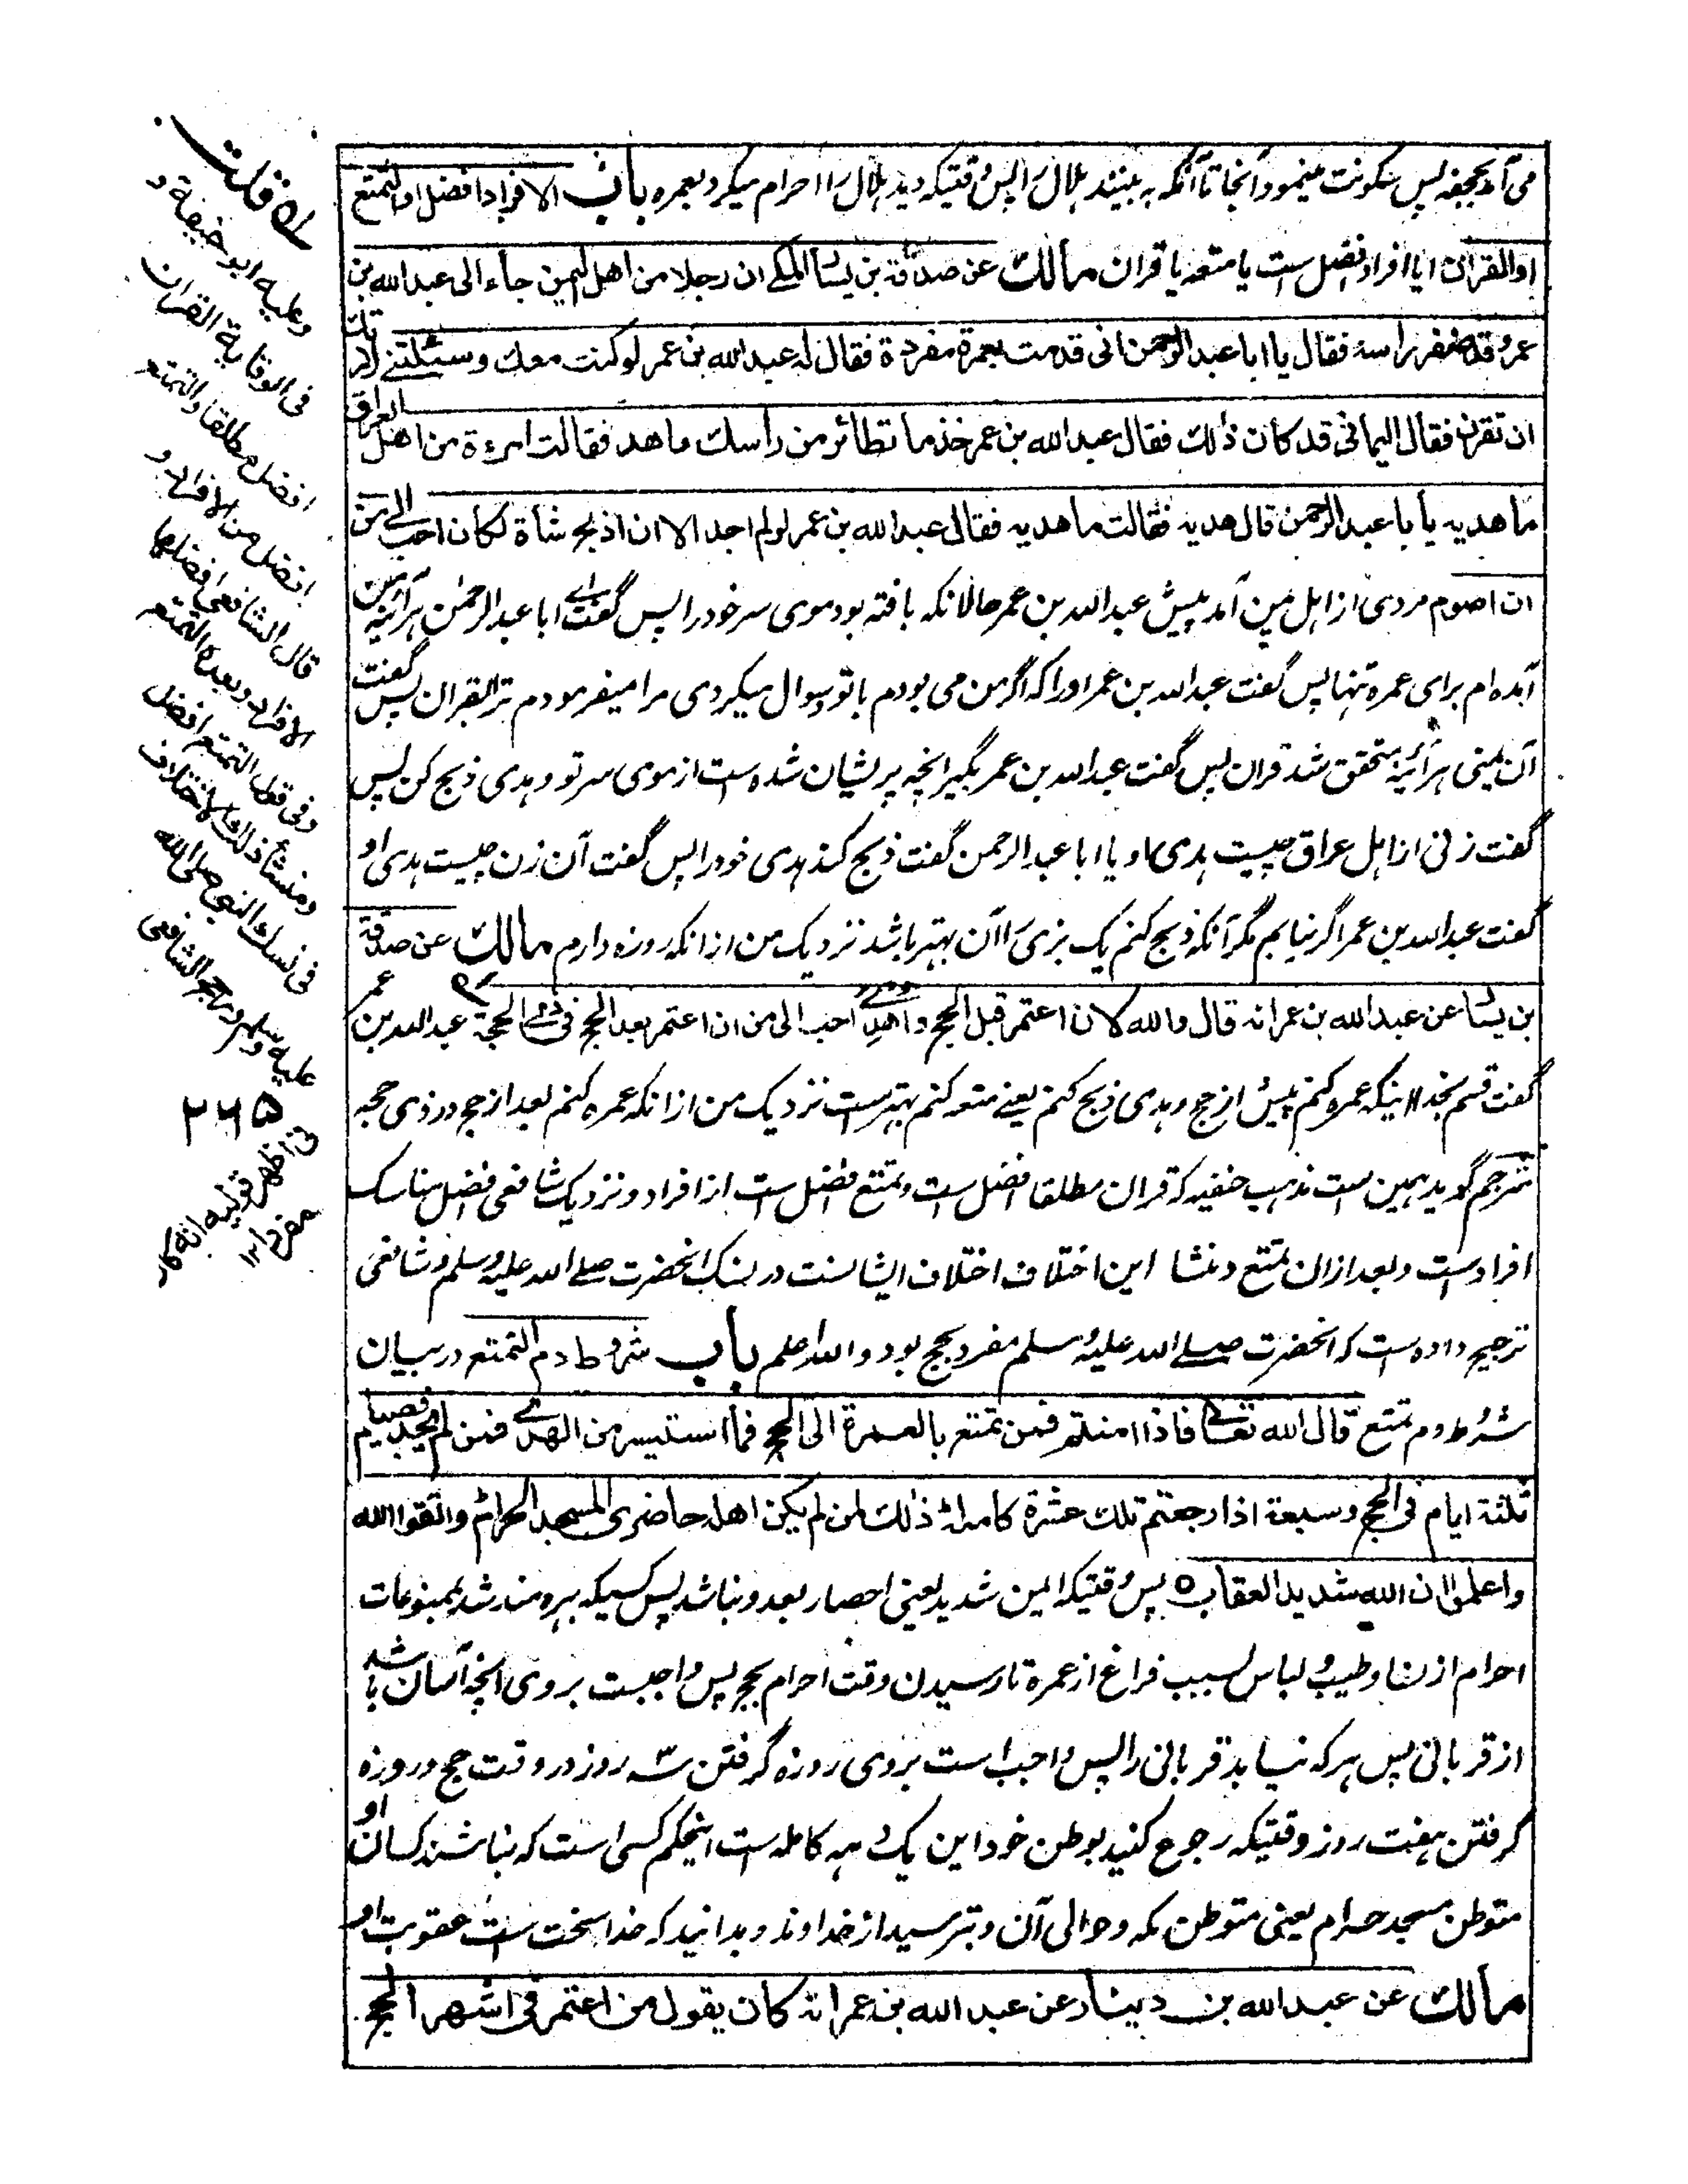 می آمد بجحفه پس سکونت مینمود آنجا تا آنکه به بینند هلال را پس وقتیکه دید هلال را احرام میکرد بعمره باب الافراد افضل او التمتع
او القران ایا افراد افضل است یا متعه یا قران مالك عن صدقة بن یسار المکے ان رجلا من اهل الیمن جاء الی عبد الله بن
عمر وقد ضفر راسه فقال یا ابا عبد الرحمن انی قدمت بعمرة مفردة فقال له عبد الله بن عمر لو کنت معك وسئلتنے لامرتك
ان تقرن فقال الیمانی قد کان ذلك فقال عبد الله بن عمر خذ ما تطائر من راسك واهد فقالت امرءة من اهل العراق
ما هدیه یا با عبد الرحمن قال هدیه فقالت ما هدیه فقال عبد الله بن عمر لو لم اجد الا ان اذبح شاة لکان احب الی من
ان اصوم مردی از اهل یمن آمد پیش عبد الله بن عمر حالانکه بافته بود موی سر خود را پس گفت اے ابا عبد الرحمن هرآئینه من
آمده ام برای عمره تنها پس گفت عبد الله بن عمر او را که اگر من می بودم با تو وسوال میکردی مرا میفرمودم ترا بقران پس گفت
آن یمنی هرآئینه متحقق شد قران پس گفت عبد الله بن عمر بگیر انچه پریشان شده است از موی سر تو و هدی ذبح کن پس
گفت زنی از اهل عراق چیست هدی او یا ابا عبد الرحمن گفت ذبح کند هدی خود را پس گفت آن زن چیست هدی او
گفت عبد الله بن عمر اگر نیابم مگر آنکه ذبح کنم یک بزی را آن بهتر باشد نزدیک من از انکه روزه دارم مالك عن صدقة
بن یسار عن عبد الله بن عمر انه قال والله لان اعتمر قبل الحج واهدی احب الی من ان اعتمر بعد الحج فی ذی الحجة عبد الله بن عمر
گفت قسم بخدا اینکه عمره کنم پیش از حج و هدی ذبح کنم یعنے متعه کنم بهتر ست نزدیک من از انکه عمره کنم بعد از حج در ذی حجه
مترجم گوید همین ست مذهب حنفیه که قران مطلقا افضل ست و تمتع افضل ست از افراد و نزدیک شافعی افضل مناسک
افراد ست و بعد ازان تمتع و منشا این اختلاف اختلاف ایشانست در نسک انحضرت صلے الله علیه وسلم و شافعی
ترجیح داده ست که انحضرت صلے الله علیه وسلم مفرد بحج بود والله اعلم باب شروط دم التمتع در بیان
شروط دم تمتع قال الله تعالی فاذا امنتم فمن تمتع بالعمرة الی الحج فما استیسر من الهدی فمن لم یجد فصیام
ثلثة ایام فی الحج وسبعة اذا رجعتم تلك عشرة کاملة ذلك لمن لم یکن اهله حاضری المسجد الحرام واتقوا الله
واعلموا ان الله شدید العقاب ه پس وقتیکه ایمن شدید یعنی احصار بعدو نباشد پس کسیکه بهره مند شد بممنوعات
احرام از نسا و طیب و لباس بسبب فراغ از عمرة تا رسیدن وقت احرام بحج پس واجبست بروی انچه آسان باشد
از قربانی پس هر که نیابد قربانی را پس واجب است بروی روزه گرفتن سه روز در وقت حج و روزه
گرفتن هفت روز وقتیکه رجوع کنید بوطن خود این یک دهه کامله ست اینحکم کسی است که نباشند کسان او
متوطن مسجد حرام یعنی متوطن مکه و حوالی آن و بترسید از خداوند و بدانید که خدا سخت ست عقوبت او
مالك عن عبد الله بن دینار عن عبد الله بن عمر انه کان یقول من اعتمر فی اشهر الحج
قلت
وعلیه ابو حنیفة و
فی الوقایة القران
افضل مطلقا والتمتع
افضل من الافراد و
قال الشافعی افضلها
الافراد وبعده التمتع
وفی قول التمتع افضل
ومنشأ ذلك الاختلاف
فی نسك النبی صلی الله
علیه وسلم ورجح الشافعی
۲۶۵
فی اظهر قولیه انه کان
مفردا ۱۲